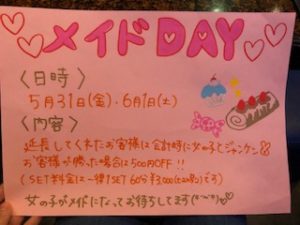 メイドDAY
〈日時〉
5月31日(金)・6月1日(土)
〈内容〉
延長してくれたお客様は会計時に女の子とジャンケン
お客様が勝った場合は500円OFF!!
(SET料金は一律1SET 60分¥3,000(です)
女の子がメイドになってお待ちしてます